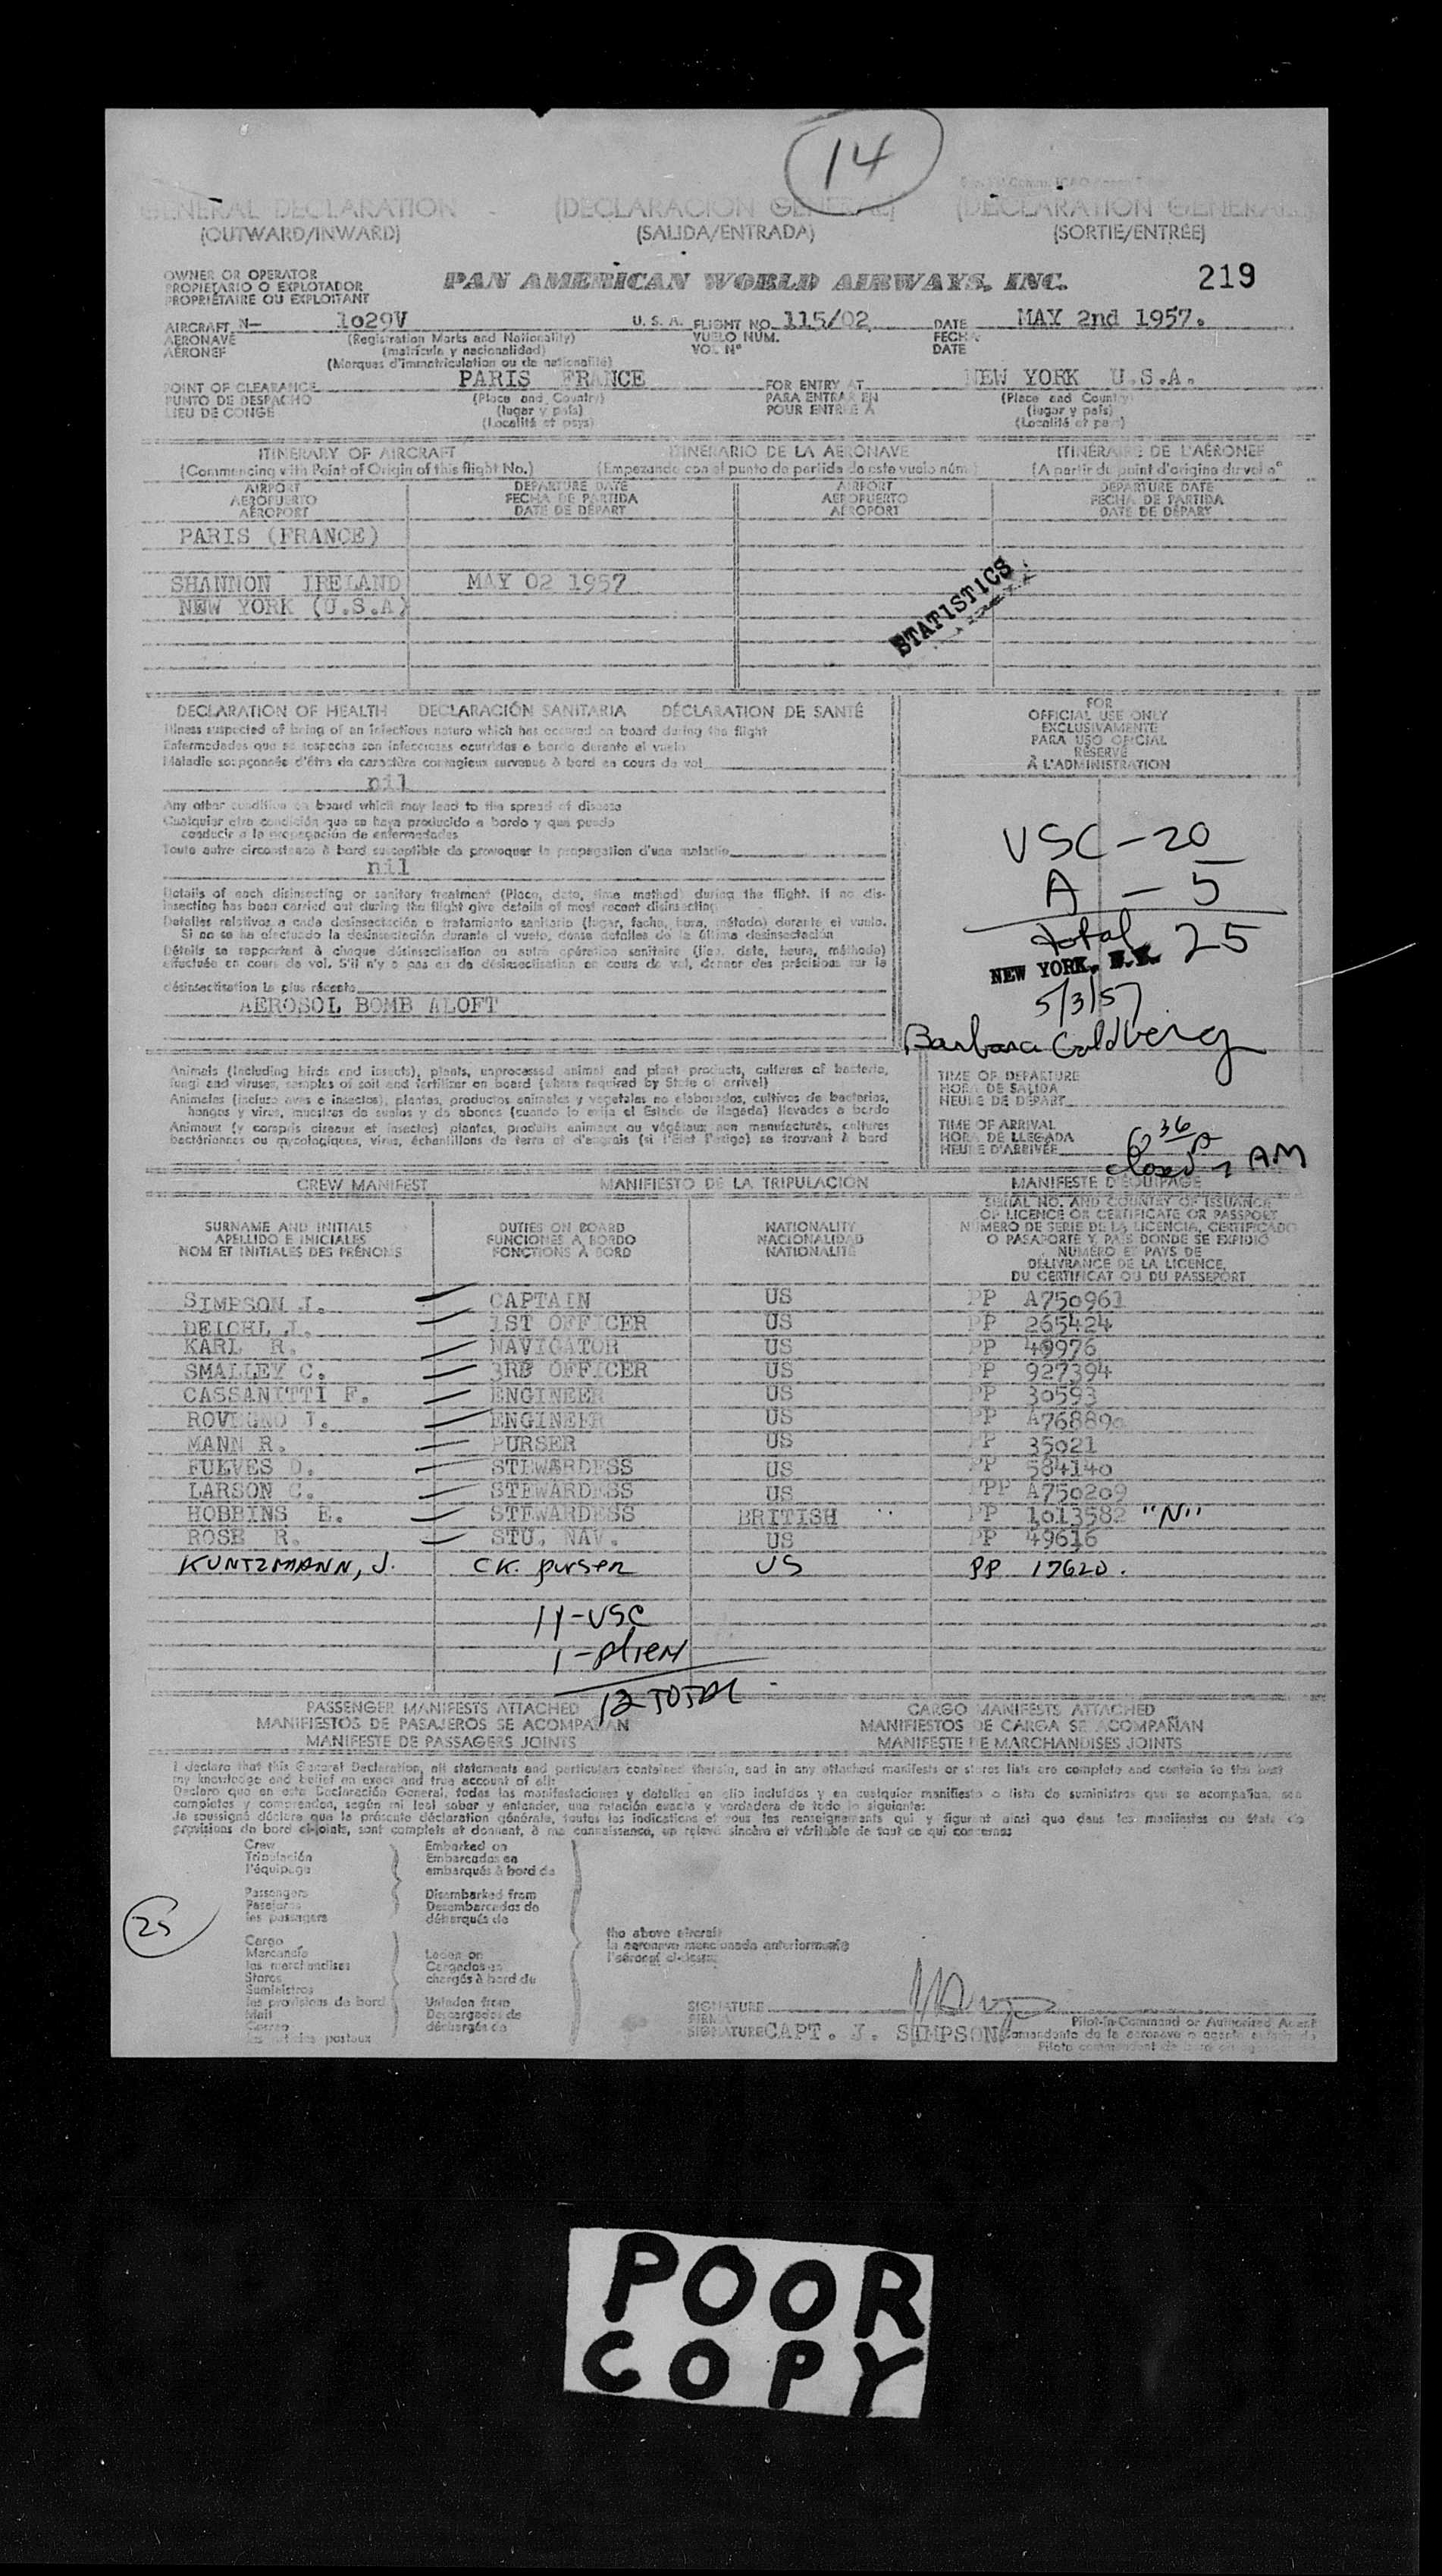 14
GENERAL DECLARATION (DECLARACION GENERAL) (DECLARATION GENERALE)
(OUTWARD/INWARD) (SALIDA/ENTRADA) (SORTIE/ENTRÉE)
OWNER OR OPERATOR
PROPIETARIO O EXPLOTADOR
PROPRIÉTAIRE OU EXPLOITANT
PAN AMERICAN WORLD AIRWAYS, INC. 219
AIRCRAFT N— 1029V U. S. A. FLIGHT NO. 115/02 DATE MAY 2nd 1957.
AERONAVE (Registration Marks and Nationality) VUELO NUM. FECHA
AÉRONEF (matrícula y nacionalidad) VOL Nº DATE
(Marques d'immatriculation ou de nationalité)
POINT OF CLEARANCE PARIS FRANCE FOR ENTRY AT NEW YORK U.S.A.
PUNTO DE DESPACHO (Place and Country) PARA ENTRAR EN (Place and Country)
LIEU DE CONGE (lugar y país) POUR ENTRÉE À (lugar y país)
(Localité et pays) (Localité et pays)
ITINERARY OF AIRCRAFT ITINERARIO DE LA AERONAVE ITINÉRAIRE DE L'AÉRONEF
(Commencing with Point of Origin of this flight No.) (Empezando con el punto de partida de este vuelo núm.) (A partir du point d'origine du vol nº
AIRPORT DEPARTURE DATE AIRPORT DEPARTURE DATE
AEROPUERTO FECHA DE PARTIDA AEROPUERTO FECHA DE PARTIDA
AÉROPORT DATE DE DÉPART AÉROPORT DATE DE DÉPART
PARIS (FRANCE)
SHANNON IRELAND MAY 02 1957
NEW YORK (U.S.A)
STATISTICS
DECLARATION OF HEALTH DECLARACIÓN SANITARIA DÉCLARATION DE SANTÉ
Illness suspected of being of an infectious nature which has occurred on board during the flight
Enfermedades que se sospecha son infecciosas ocurridas a bordo durante el vuelo
Maladie soupçonnée d'être de caractère contagieux survenue à bord en cours de vol
nil
Any other condition on board which may lead to the spread of disease
Cualquier otra condición que se haya producido a bordo y que pueda
conducir a la propagación de enfermedades
Toute autre circonstance à bord susceptible de provoquer la propagation d'une maladie
nil
Details of each disinsecting or sanitary treatment (Place, date, time method) during the flight. If no dis-
insecting has been carried out during the flight give details of most recent disinsecting
Detalles relativos a cada desinsectación o tratamiento sanitario (lugar, fecha, hora, método) durante el vuelo.
Si no se ha efectuado la desinsectación durante el vuelo, dense detalles de la última desinsectación
Détails se rapportant à chaque désinsectisation ou autre opération sanitaire (lieu, date, heure, méthode)
effectuée en cours de vol. S'il n'y a pas eu de désinsectisation en cours de vol, donner des précisions sur la
désinsectisation la plus récente
AEROSOL BOMB ALOFT
FOR
OFFICIAL USE ONLY
EXCLUSIVAMENTE
PARA USO OFICIAL
RÉSERVÉ
À L'ADMINISTRATION
USC - 20
A - 5
total 25
NEW YORK, N.Y.
5/3/57
Barbara Goldberg
Animals (including birds and insects), plants, unprocessed animal and plant products, cultures of bacteria,
fungi and viruses, samples of soil and fertilizer on board (where required by State of arrival)
Animales (incluso aves e insectos), plantas, productos animales y vegetales no elaborados, cultivos de bacterias,
hongos y virus, muestras de suelos y de abonos (cuando lo exija el Estado de llegada) llevados a bordo
Animaux (y compris oiseaux et insectes) plantes, produits animaux ou végétaux non manufacturés, cultures
bactériennes ou mycologiques, virus, échantillons de terre et d'engrais (si l'État l'exige) se trouvant à bord
TIME OF DEPARTURE
HORA DE SALIDA
HEURE DE DÉPART
TIME OF ARRIVAL
HORA DE LLEGADA
HEURE D'ARRIVÉE 6 36 A
closed 7 AM
CREW MANIFEST MANIFIESTO DE LA TRIPULACIÓN MANIFESTE D'ÉQUIPAGE
SURNAME AND INITIALS
APELLIDO E INICIALES
NOM ET INITIALES DES PRÉNOMS
DUTIES ON BOARD
FUNCIONES A BORDO
FONCTIONS À BORD
NATIONALITY
NACIONALIDAD
NATIONALITÉ
SERIAL NO. AND COUNTRY OF ISSUANCE
OF LICENCE OR CERTIFICATE OR PASSPORT
NÚMERO DE SERIE DE LA LICENCIA, CERTIFICADO
O PASAPORTE Y PAÍS DONDE SE EXPIDIÓ
NUMÉRO ET PAYS DE
DÉLIVRANCE DE LA LICENCE,
DU CERTIFICAT OU DU PASSEPORT
SIMPSON J. CAPTAIN US PP A750961
DEICHL J. 1ST OFFICER US PP 265424
KARL R. NAVIGATOR US PP 49976
SMALLEY C. 3RD OFFICER US PP 927394
CASSANITTI F. ENGINEER US PP 30593
ROVEGNO J. ENGINEER US PP A768890
MANN R. PURSER US PP 35021
FULVES D. STEWARDESS US PP 584140
LARSON C. STEWARDESS US PP A750209
HOBBINS E. STEWARDESS BRITISH PP 1013582 "N"
ROSE R. STU. NAV. US PP 49616
KUNTZMANN, J. CK. purser US PP 17620.
11-USC
1-Alien
12 TOTAL
PASSENGER MANIFESTS ATTACHED CARGO MANIFESTS ATTACHED
MANIFIESTOS DE PASAJEROS SE ACOMPAÑAN MANIFIESTOS DE CARGA SE ACOMPAÑAN
MANIFESTE DE PASSAGERS JOINTS MANIFESTE DE MARCHANDISES JOINTS
I declare that this General Declaration, all statements and particulars contained therein, and in any attached manifests or stores lists are complete and contain to the best
my knowledge and belief an exact and true account of all:
Declaro que en esta Declaración General, todas las manifestaciones y detalles en ella incluídos y en cualquier manifiesto o lista de suministros que se acompañan, son
completos y comprenden, según mi leal saber y entender, una relación exacta y verdadera de todo lo siguiente:
Je soussigné déclare que la présente déclaration générale, toutes les indications et tous les renseignements qui y figurent ainsi que dans les manifestes ou états de
provisions de bord ci-joints, sont complets et donnent, à ma connaissance, un relevé sincère et véritable de tout ce qui concerne:
Crew Embarked on
Tripulación Embarcados en
l'équipage embarqués à bord de
Passengers Disembarked from
Pasajeros Desembarcados de
les passagers débarqués de
25
Cargo
Mercancía
les marchandises
Stores
Suministros
les provisions de bord
Mail
Correo
les articles postaux
Laden on
Cargados en
chargés à bord de
Unladen from
Descargados de
déchargés de
the above aircraft
la aeronave mencionada anteriormente
l'aéronef ci-dessus
SIGNATURE
FIRMA
SIGNATURE CAPT. J. SIMPSON
Pilot-in-Command or Authorized Agent
POOR
COPY